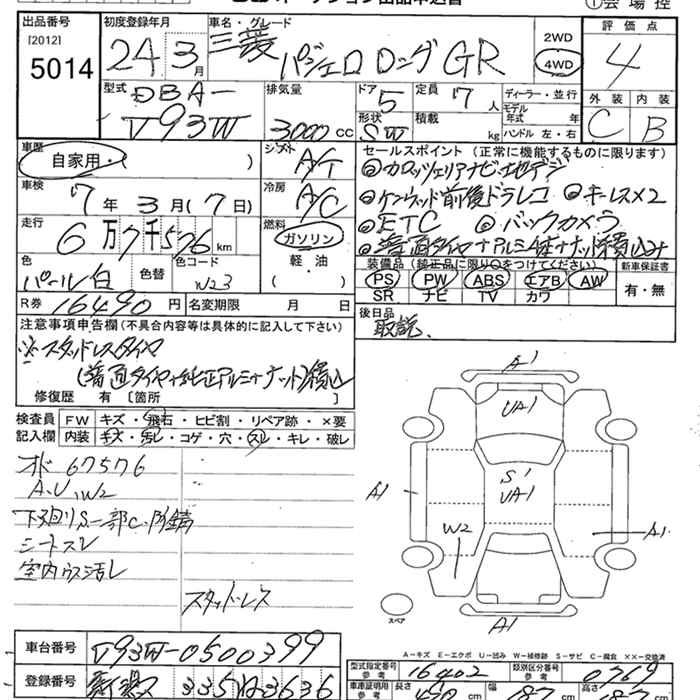 ①会場控
出品番号
[2012]
5014
初度登録年月
24 3月
車名・グレード
三菱 パジェロ ロング GR
2WD
4WD
評価点
4
外装 内装
C B
型式
DBA-
V93W
排気量
3000 CC
ドア 5
形状 SW
定員 7人
積載 kg
ディーラー・並行
モデル年式 年
ハンドル 左・右
車歴
自家用・( )
シフト A/T
セールスポイント (正常に機能するものに限ります)
◎カロッツェリアナビ・地デジ
◎ケンウッド前後ドラレコ ◎キーレス×2
◎ETC ◎バックカメラ
◎普通タイヤ+アルミ+ナット積込み
車検
7年 3月 (7日)
冷房 A/C
走行
6万7千576 km
燃料
ガソリン
軽・油
( )
色
パール白
色替
色コード
W23
装備品 (純正品に限り○をつけてください)
PS PW ABS エアB AW
SR ナビ TV カワ
新車保証書
有・無
R券 16490円 名変期限 月 日
後日品
取説.
注意事項申告欄 (不具合内容等は具体的に記入して下さい)
※スタッドレスタイヤ
(普通タイヤ+純正アルミ+ナット)積込
修復歴 有 [箇所 ]
検査員 FW キズ・飛石・ヒビ割・リペア跡・×要
記入欄 内装 キズ・汚レ・コゲ・穴・スレ・キレ・破レ
オド 67576
A.U.W2
下廻りS一部C.所錆
シートスレ
室内ウス汚レ
スタッドレス
A1
UA1
S1
UA1
A1
W2
A1
A1
スペア
A-キズ E-エクボ U-凹み W-補修跡 S-サビ C-腐食 ××-交換済
車台番号 V93W-0500399
登録番号 新潟 335 3636
型式指定番号 参考 16402
類別区分番号 参考 0769
車庫証明用 参考 長さ cm 幅 187 cm 高さ 187 cm